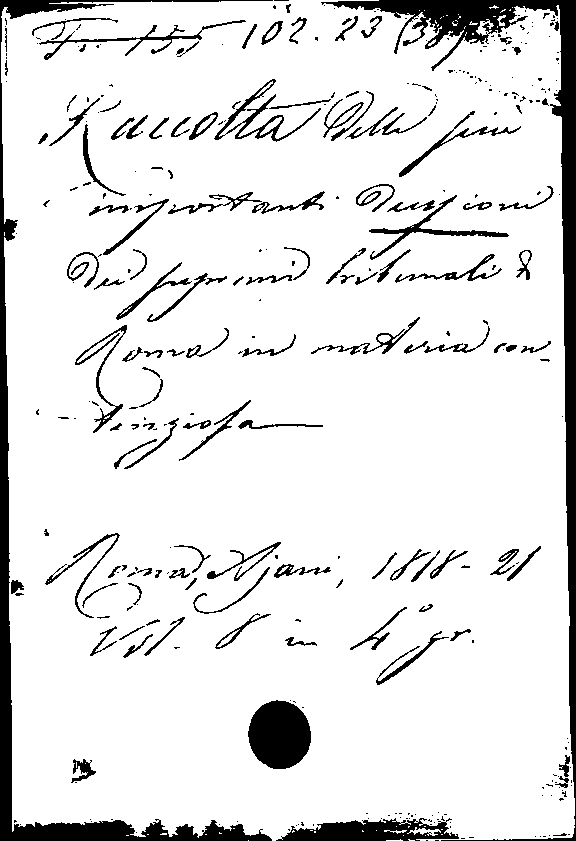 Fr. 155 102. 23 (38)
Raccolta delle più
importanti decisioni
dei supremi tribunali di
Roma in materia con-
tenziosa
Roma, Ajani, 1818-21
Vol. 8 in 4° gr.